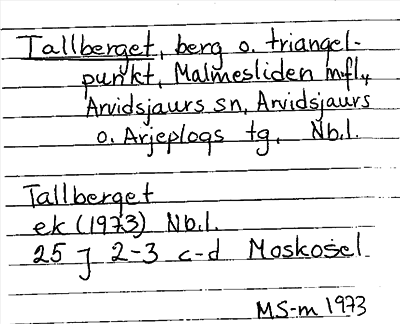 Tallberget, berg o. triangel-
punkt, Malmesliden mfl.,
Arvidsjaurs sn, Arvidsjaurs
o. Arjeplogs tg, Nb.l.
Tallberget
ek (1973) Nb.l.
25 J 2-3 c-d Moskosel
MS-m 1973